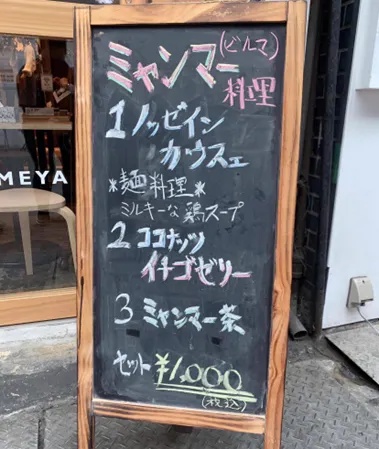 ミャンマー(ビルマ)
料理
1ノッゼイン
カウスェ
*麺料理*
ミルキーな鶏スープ
2 ココナッツ
イチゴゼリー
3 ミャンマー茶
セット ¥1,000
(税込)
MEYA